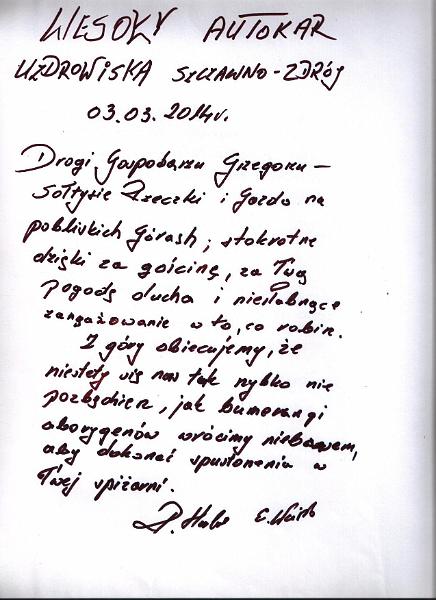 WESOŁY AUTOKAR
UZDROWISKA SZCZAWNO-ZDRÓJ
03.03.2014r.
Drogi Gospodarzu Grzegorzu –
Sołtysie Rzeczki i Gazdo na
pobliskich Górach; stokrotne
dzięki za gościnę, za Twą
pogodę ducha i niesłabnące
zaangażowanie w to, co robisz.
Z góry obiecujemy, że
niestety się nas tak szybko nie
pozbędziesz, jak bumerangi
aborygenów wrócimy niebawem,
aby dokonać spustoszenia w
Twej spiżarni.